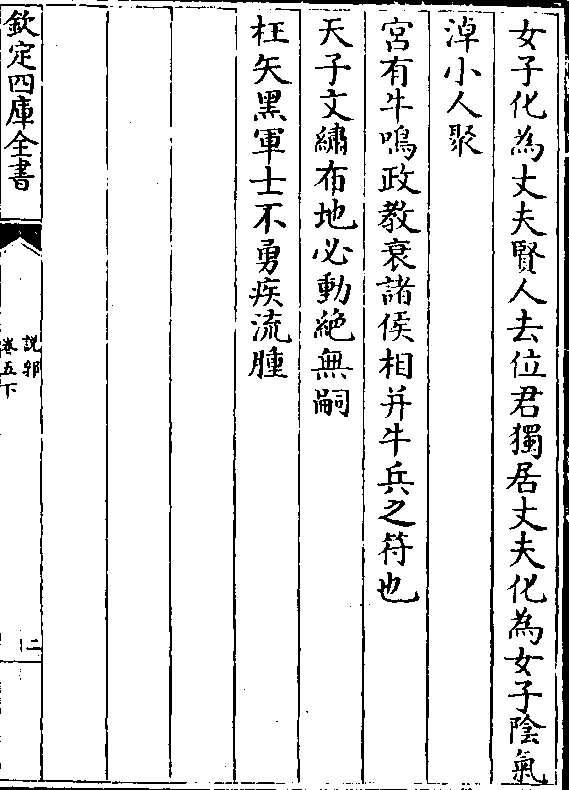 女子化為丈夫賢人去位君獨居丈夫化為女子陰氣
淖小人聚
宮有牛鳴政教衰諸侯相并牛兵之符也
天子文繡布地必動絶無嗣
枉矢黑軍士不勇疾流腫
欽定四庫全書
說郛
卷五下
二